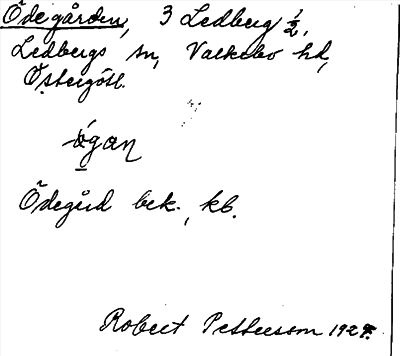 Ödegården, 3 Ledberg 1/2,
Ledbergs sn, Valkebo hd,
Östergötl.
ǫ́gan
Ödegård bek., kb.
Robert Pettersson 1927.